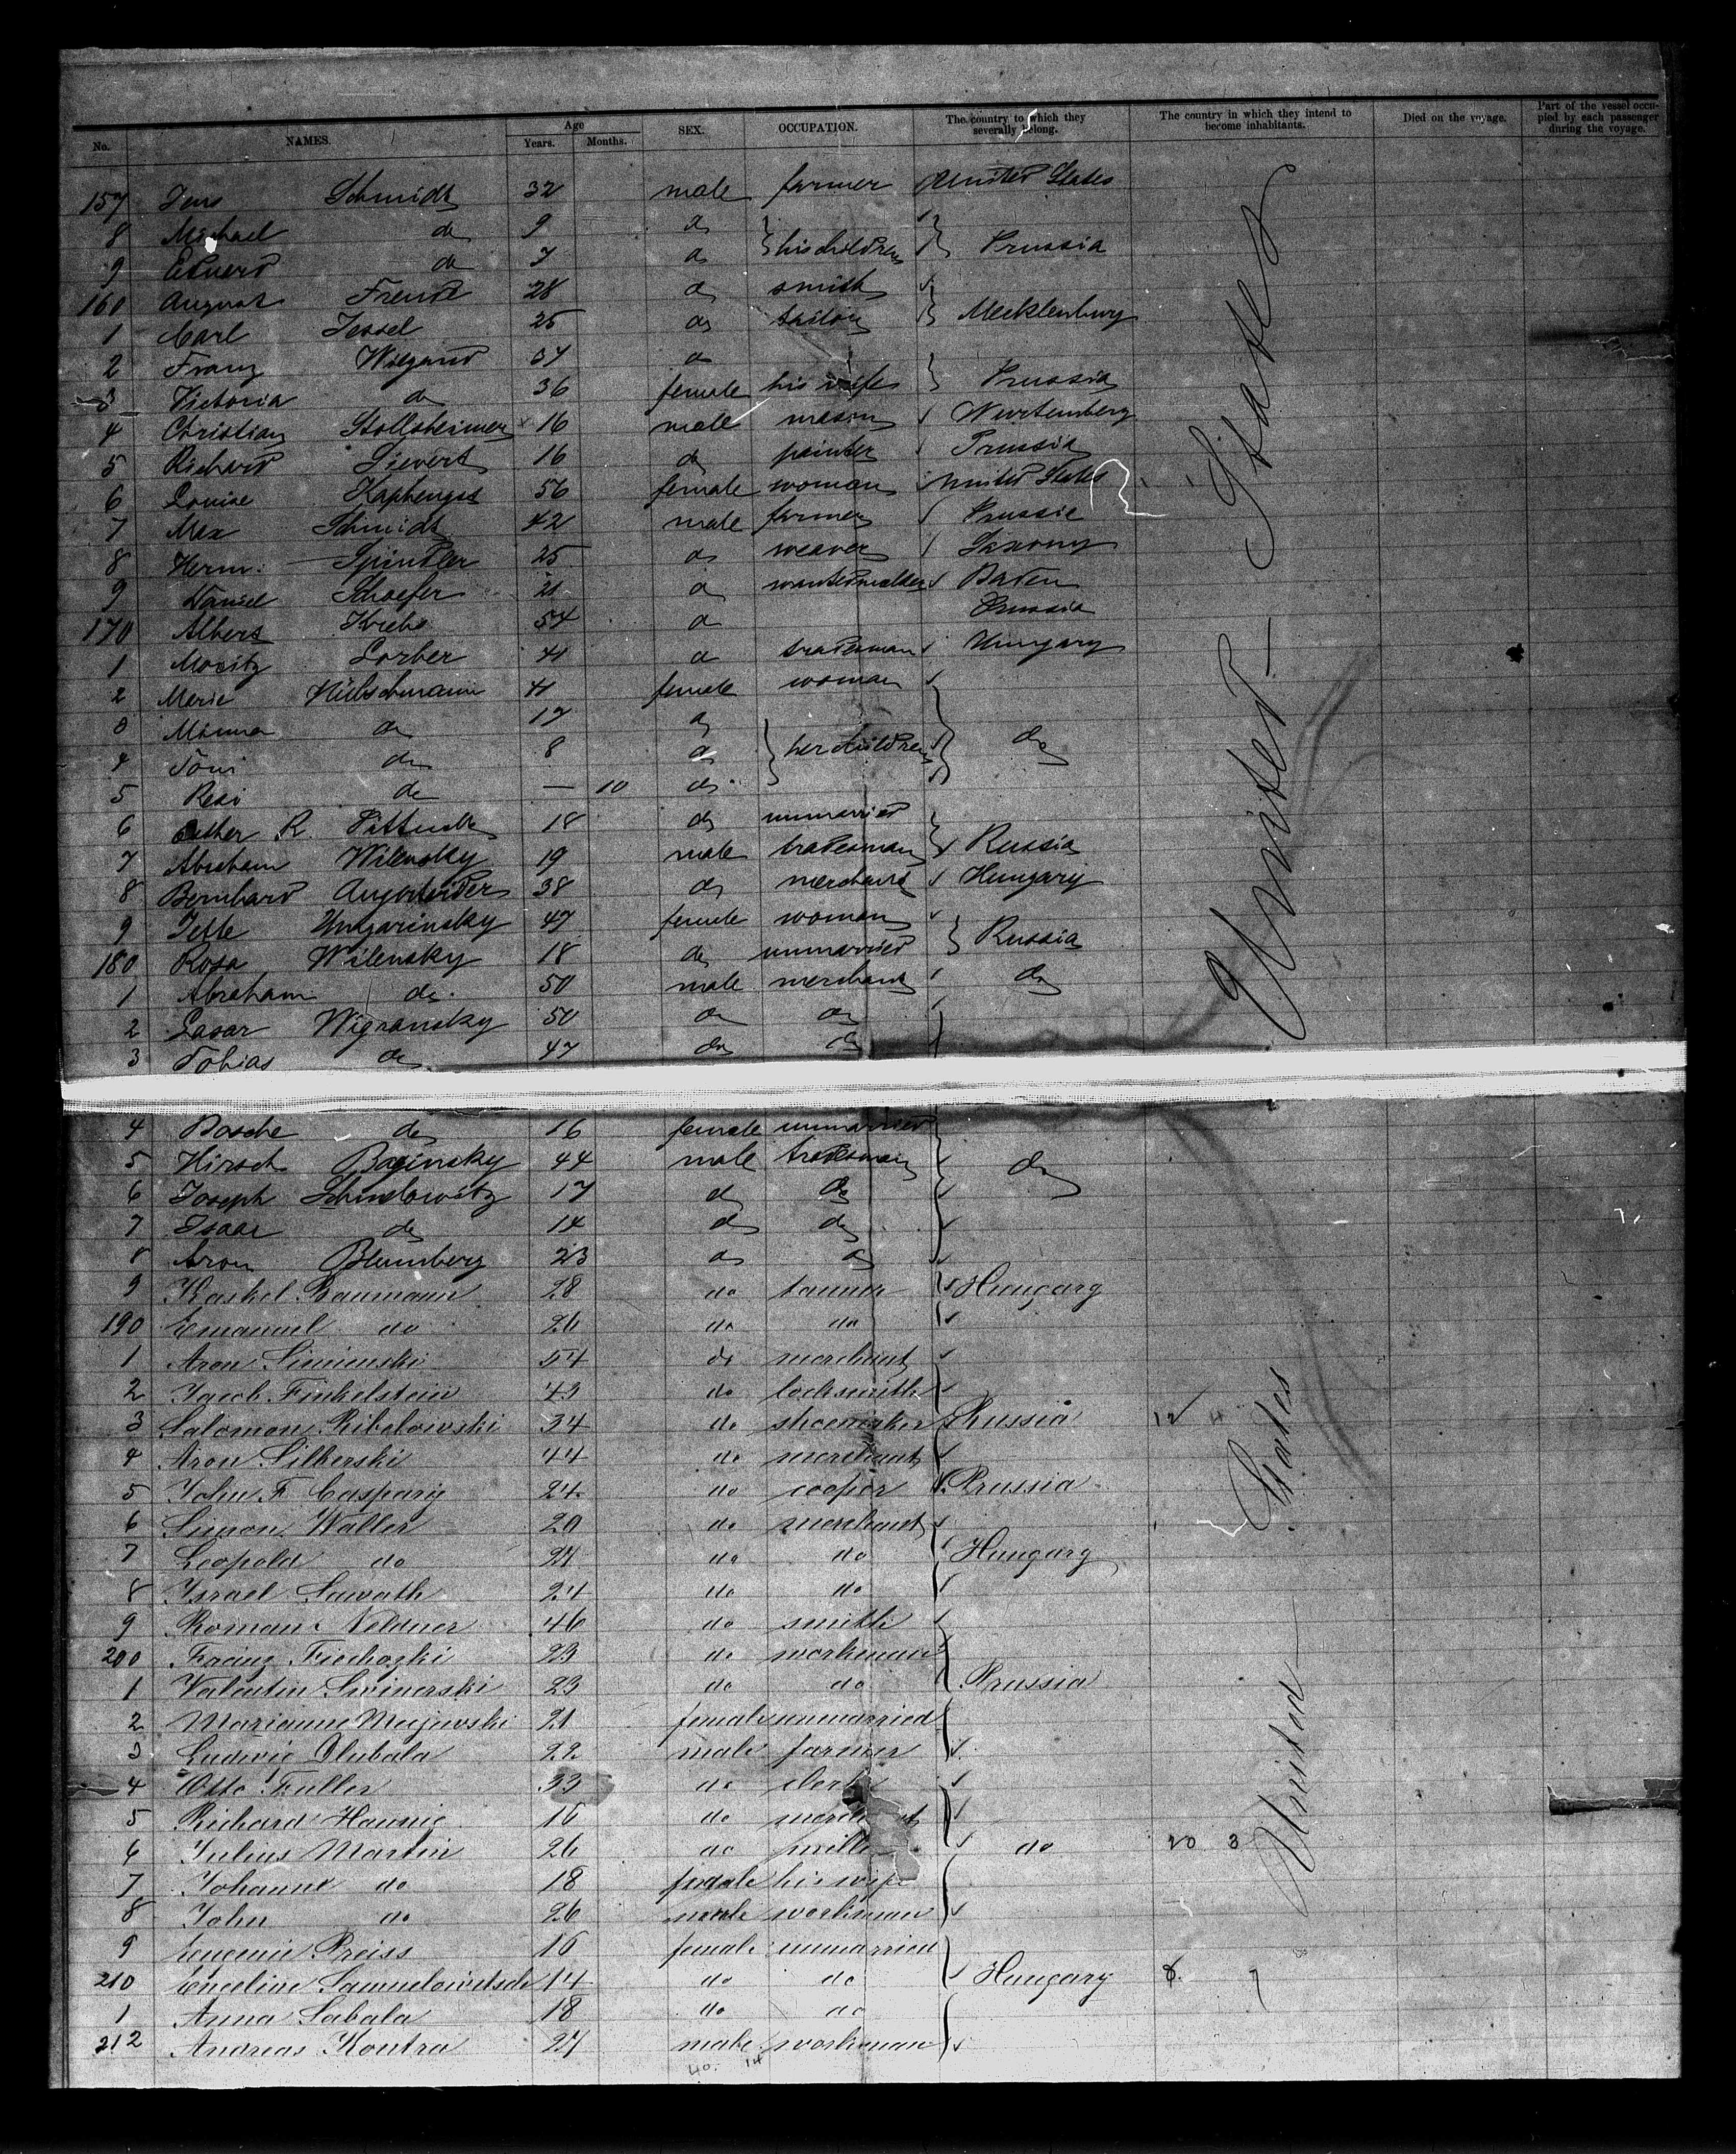 No. NAMES. Age Years. Months. SEX. OCCUPATION. The country to which they severally belong. The country in which they intend to become inhabitants. Died on the voyage. Part of the vessel occupied by each passenger during the voyage.
157 Jens Schmidt 32 male farmer United States
8 Michael do 9 do
9 do 7 do his children Prussia
160 August Freude 28 do smith
1 Carl Jessel 25 do tailor Mecklenburg
2 Franz Wiegand 37 do
3 Victoria do 36 female his wife Prussia
4 Christian Stollsheimer 16 male mason Wurtemberg
5 Richard Sievert 16 do painter Prussia
6 Louise Kaphengst 56 female woman United States
7 Max Schmidt 42 male farmer Prussia
8 Herm. Spindler 25 do weaver Saxony
9 Daniel Schaefer 21 do Baden
170 Albert Krebs 54 do Prussia
1 Moritz Lorber 41 do tradesman Hungary
2 Marie Hübschmann 41 female woman
3 Minna do 17 do
4 Toni do 8 do her children do
5 Resi do — 10 do
6 Esther R. 18 do unmarried
7 Abraham Wilensky 19 male tradesman Russia
8 Bernhard 38 do merchant Hungary
9 Jette Ungarinsky 47 female woman
180 Rosa Wilensky 18 do unmarried Russia
1 Abraham do 50 male merchant do
2 Lasar Wigransky 50 do do
3 Tobias do 47 do do
United States
4 Basche do 16 female unmarried
5 Hirsch Baginsky 44 male tradesman do
6 Joseph Schmulowitz 17 do do
7 Isaac do 14 do do
8 Aron Blumberg 23 do do
9 Kaskel Baumann 28 do tanner Hungary
190 Emanuel do 26 do do
1 Aron Siminski 54 do merchant
2 Jacob Finkelstein 43 do locksmith
3 Salomon Ribelowski 34 do shoemaker Russia 12 4
4 Aron Silberski 44 do merchant
5 John F. Caspary 24 do cooper Prussia
6 Simon Waller 20 do merchant
7 Leopold do 27 do do Hungary
8 Israel Sawath 24 do do
9 Roman Veldner 46 do smith
200 Franz 23 do workman
1 Valentin Swinerski 23 do do Prussia
2 Marianne Majewski 21 female unmarried
3 Ludwig 22 male farmer
4 Otto Fuller 33 do clerk
5 Richard Haunig 16 do merchant
6 Julius Martin 26 do miller do 20 3
7 Johanne do 18 female his wife
8 John do 26 male workman
9 Eugenie Preiss 16 female unmarried
210 Engeline Samuelowitsch 14 do do Hungary 8 7
1 Anna Sabala 18 do do
212 Andreas Kontra 27 male workman
40. 14
United States